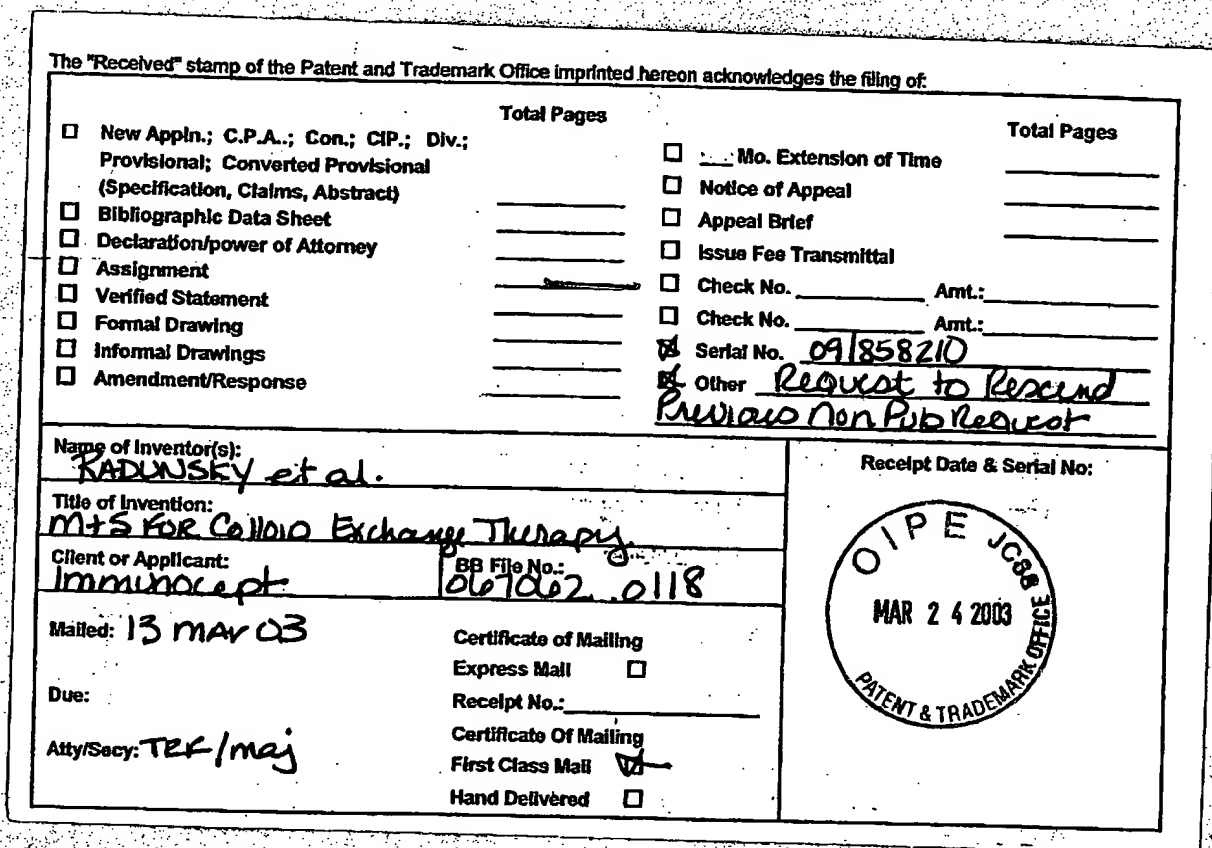 The "Received" stamp of the Patent and Trademark Office imprinted hereon acknowledges the filing of:
Total Pages
☐ New Appln.; C.P.A..; Con.; CIP.; Div.;
Provisional; Converted Provisional
(Specification, Claims, Abstract) ____
☐ Bibliographic Data Sheet ____
☐ Declaration/power of Attorney ____
☐ Assignment ____
☐ Verified Statement ____
☐ Formal Drawing ____
☐ Informal Drawings ____
☐ Amendment/Response ____
Total Pages
☐ ____ Mo. Extension of Time ____
☐ Notice of Appeal ____
☐ Appeal Brief ____
☐ Issue Fee Transmittal
☐ Check No. ____ Amt.: ____
☐ Check No. ____ Amt.: ____
☒ Serial No. 09/858210
☒ Other Request to Rescind
Previous Non Pub Request
Name of Inventor(s):
RADUNSKY et al.
Title of Invention:
M+S FOR Colloid Exchange Therapy
Client or Applicant:
Immunocept
BB File No.:
067062.0118
Mailed: 13 MAR 03
Due:
Atty/Secy: TRF/maj
Certificate of Mailing
Express Mail ☐
Receipt No.: ____
Certificate Of Mailing
First Class Mail ☒
Hand Delivered ☐
Receipt Date & Serial No:
OIPE JC88
MAR 24 2003
PATENT & TRADEMARK OFFICE